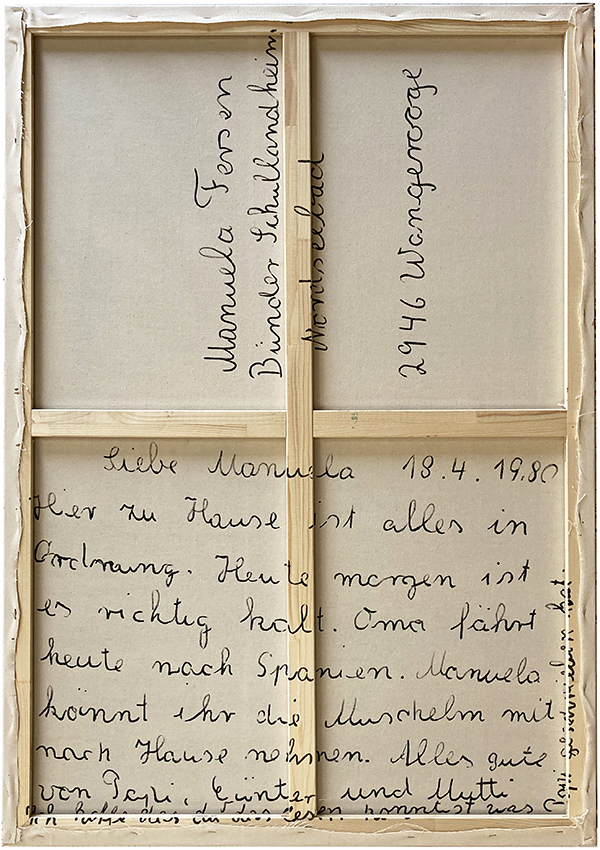 Manuela Fersen
Bünder Schullandheim
Nordseebad
2946 Wangerooge
Liebe Manuela 18.4.1980
Hier zu Hause ist alles in
Ordnung. Heute morgen ist
es richtig kalt. Oma fährt
heute nach Spanien. Manuela
könnt ihr die Muscheln mit
nach Hause nehmen. Alles gute
von Papi, Günter und Mutti
Ich hoffe das du das lesen konntist was
Papi geschrieben hat.